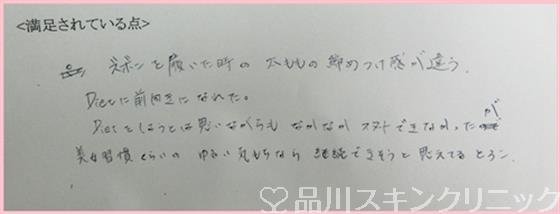 <満足されている点>
ズボンを履いた時の太ももの締めつけ感が違う。
Dietに前向きになれた。
Dietをしようとは思いながらもなかなかスタートできなかったが
美を習慣くらいのゆるい気もちなら継続できそうと思えてるところ。
品川スキンクリニック